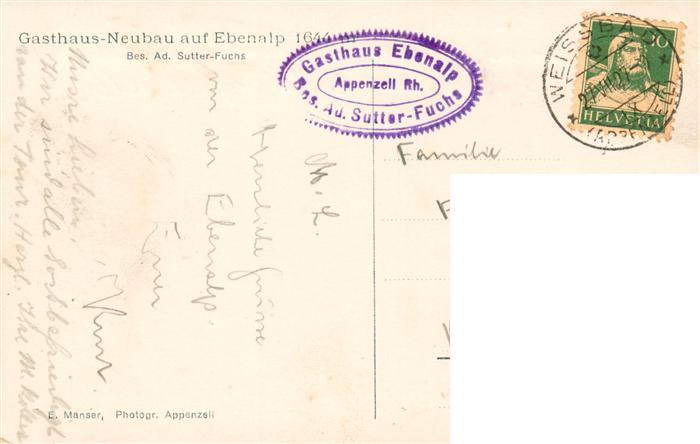 Gasthaus-Neubau auf Ebenalp 1644 m
Bes. Ad. Sutter-Fuchs
Gasthaus Ebenalp
Appenzell Rh.
Bes. Ad. Sutter-Fuchs
WEISSBAD
HELVETIA
Familie
M. L.
Herzliche Grüsse
von der Ebenalp.
Euer
Kurt.
Meine Lieben!
Wir sind alle
von der Tour. Herzl.
E. Manser, Photogr. Appenzell